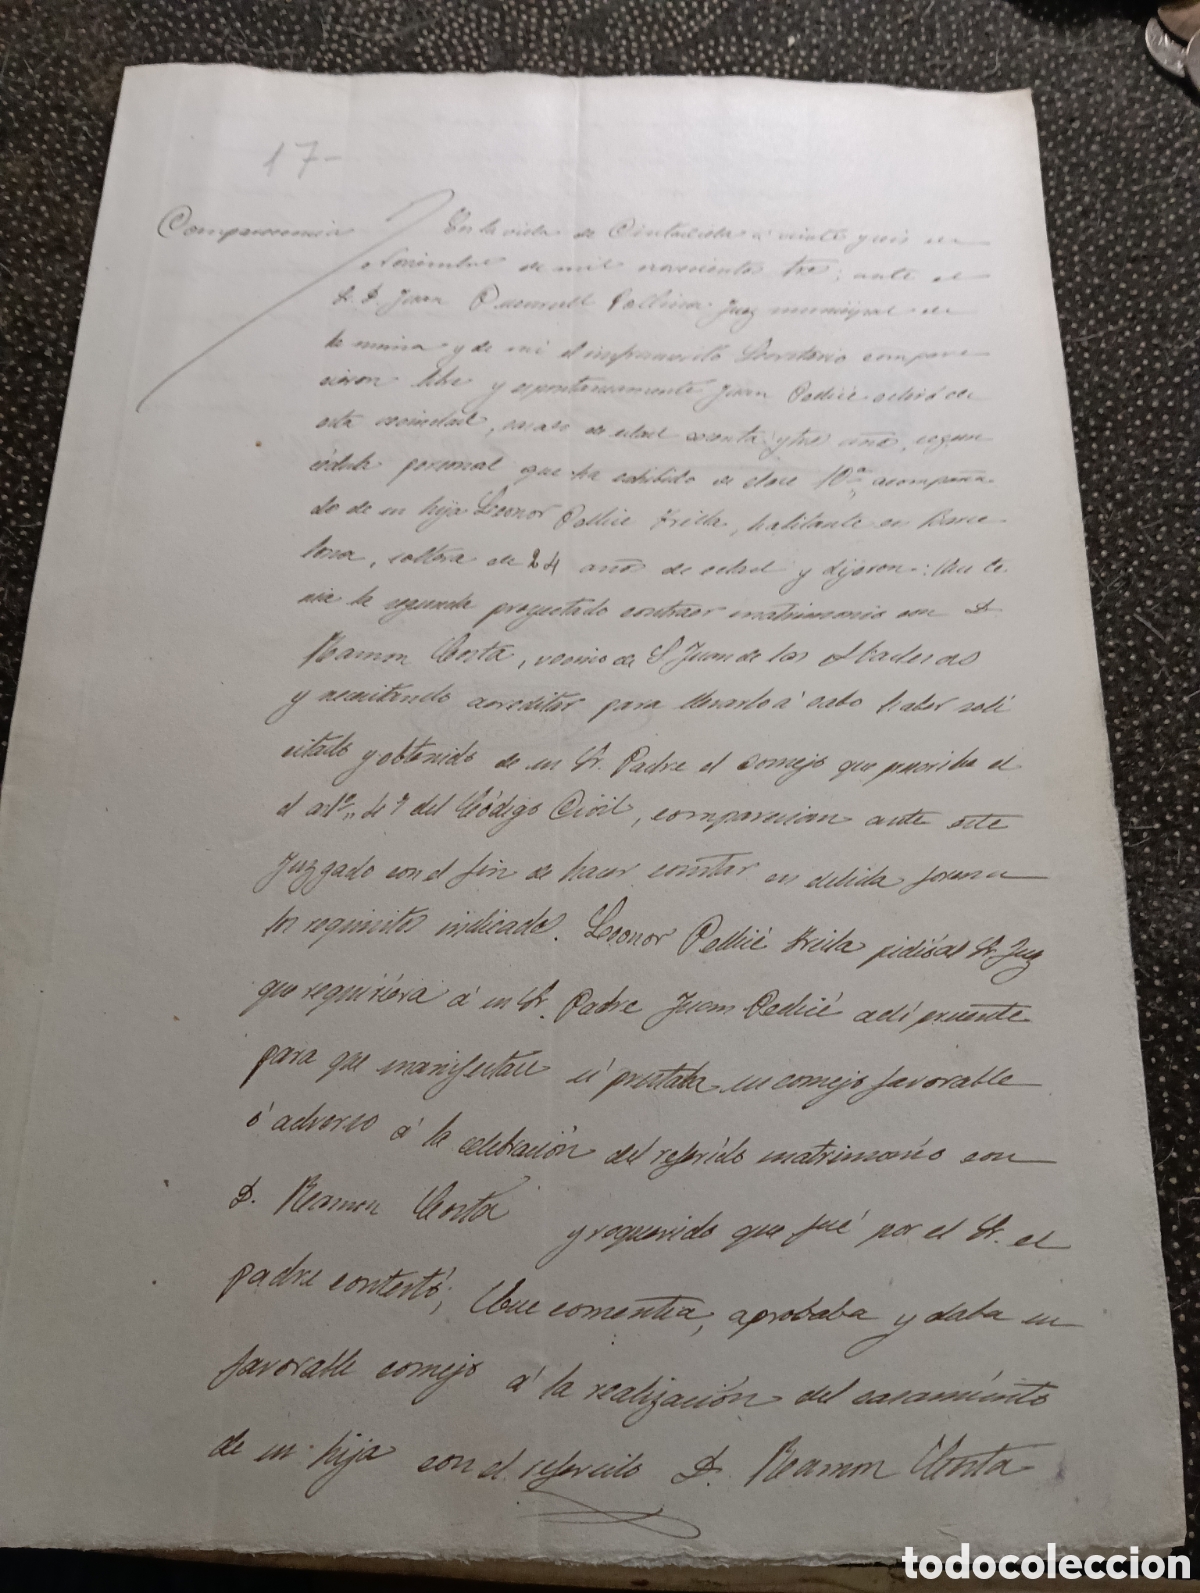 17-
Comparecencia En la villa de á veinte y seis de
Noviembre de mil novecientos tres: ante el
S. D. Juan Juez municipal de
la misma y de mi el infrascrito Secretario compare
cieron libre y espontaneamente Juan Pellicé
esta vecindad, casado de edad y tres años, segun
cédula personal que ha exhibido de clase 10ª, acompaña
do de su hija Leonor Pellicé habitante en Barce
lona, soltera de 24 años de edad y dijeron: Que te
nia la segunda proyectado contraer matrimonio con D.
Ramon Costa, vecino de S. Juan de las Abadesas
y necesitando acreditar para llevarlo á cabo haber soli
citado y obtenido de su Sr. Padre el consejo que prescribe el
el artº 47 del Código Civil, comparecian ante este
Juzgado con el fin de hacer constar en debida forma
los requisitos indicados. Leonor Pellicé pidió al Sr. Juez
que requiriera á su Sr. Padre Juan Pellicé alli presente
para que manifestase si prestaba su consejo favorable
ó adverso á la celebración del referido matrimonio con
D. Ramon Costa y requerido que fué por el Sr. el
padre contestó; Que consentia, aprobaba y daba su
favorable consejo á la realización del casamiento
de su hija con el referido D. Ramon Costa
todocoleccion